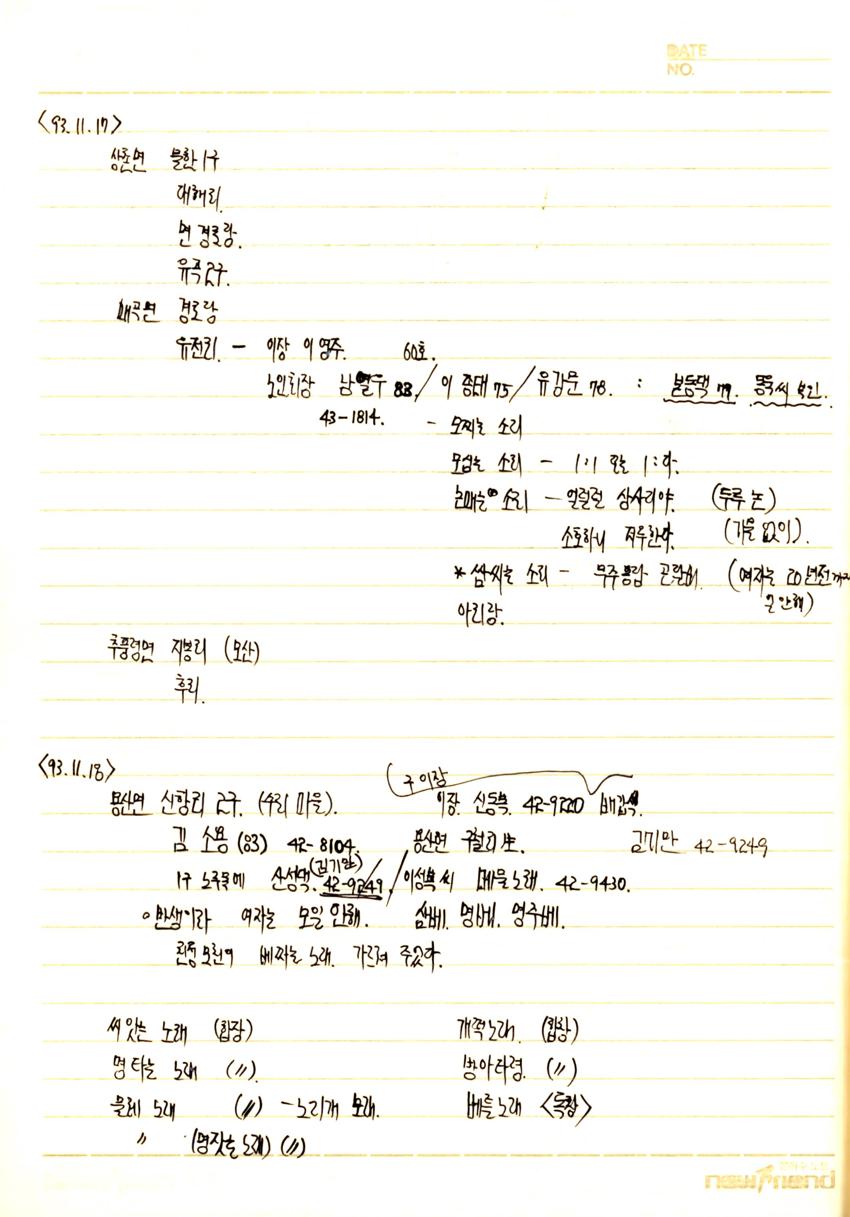 DATE
NO.
<93.11.17>
상촌면 물한1구
대해리.
면 경로당.
유곡2구.
매곡면 경로당
유전리. - 이장 이영주. 60호.
노인회장 남열우 83. / 이종태 75 / 유강문 78. : 본동댁 79.
43-1814. - 모찌는 소리
모심는 소리 - 1:1 또는 1:다.
논매는 소리 - 얼럴럴 상사리야. (두루 논)
소호하니 저루한다. (기음 없이).
* 쌈싸는 소리 - (여자는 20년전까지
아리랑. 안해)
추풍령면 지봉리 (모산)
후리.
<93.11.18>
구이장
용산면 신항리 2구. (수리 마을). 이장. 신동복. 42-9220
김 소용 (83) 42-8104. 용산면 구절리生. 김기만 42-9249
1구 노주목에 산성댁. (김기만) 42-9249. / 이성복씨 베틀노래. 42-9430.
반생이라 여자는 모일 안해. 삼베. 명베. 명주베.
베짜는 노래. 가르쳐 주었다.
씨앗는 노래 (합창) (합창)
명타는 노래 (〃) 방아타령. (〃)
물레 노래 (〃) - 노리개 노래. 베틀노래 <독창>
〃 (명잣는 노래) (〃)
newfriend